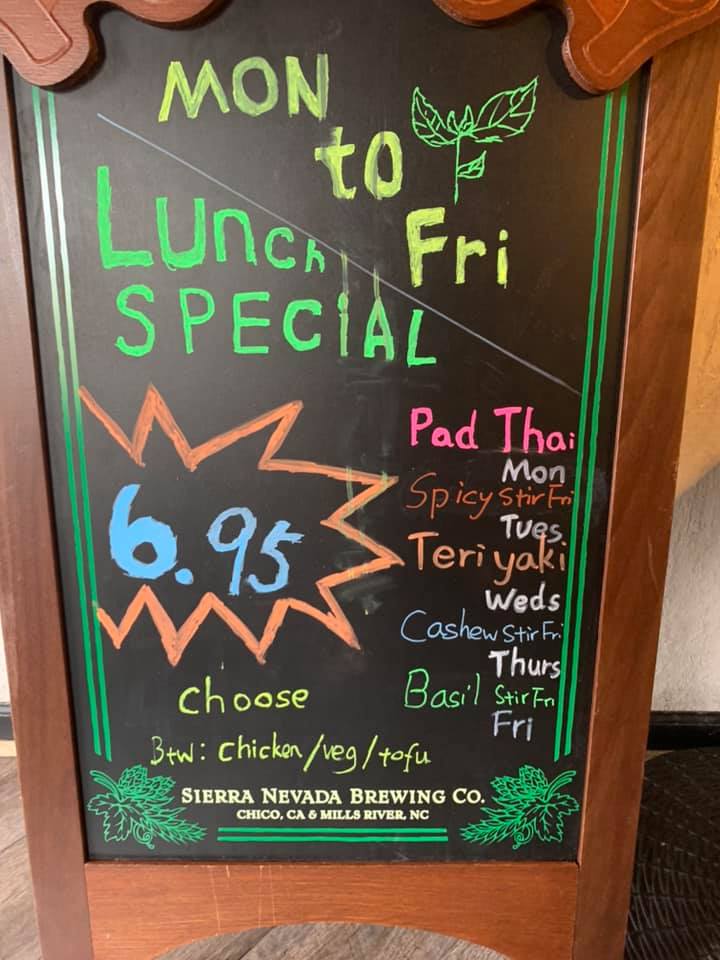 MON
to
Fri
Lunch
SPECiAL
6.95
Pad Thai
Mon
Spicy Stir Fri
Tues
Teriyaki
Weds
Cashew Stir Fri
Thurs
Basil Stir Fri
Fri
choose
Btw: chicken/veg/tofu
SIERRA NEVADA BREWING CO.
CHICO, CA & MILLS RIVER, NC